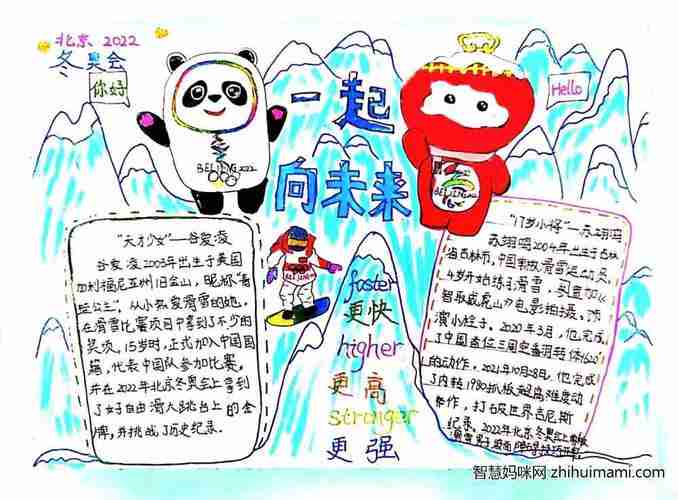 北京 2022
冬奥会
你好
一起
向未来
Hello
BEIJING 2022
BEIJING 2022
"天才少女"—谷爱凌
谷爱凌2003年出生于美国
加利福尼亚州旧金山，昵称"青
蛙公主"，从小热爱滑雪的她，
在滑雪比赛项目中拿到了不少的
奖项，15岁时，正式加入中国国
籍，代表中国队参加比赛，
并在2022年北京冬奥会上拿到
了女子自由滑大跳台上的金
牌，并挑战了历史纪录.
foster
更快
higher
更高
stronger
更强
"17岁小将"—苏翊鸣
苏翊鸣2004年出生于吉林
省吉林市，中国单板滑雪运动员，
4岁开始练习滑雪，
智取威虎山 电影拍摄、
演小栓子，2020年3月，他完成
了中国首位三周空翻转体1620
的动作，2021年10月28日，他完成
了内转1980抓板超高难度动
作，打破世界吉尼斯
纪录，2022年北京冬奥会上
智慧妈咪网 zhihuimami.com